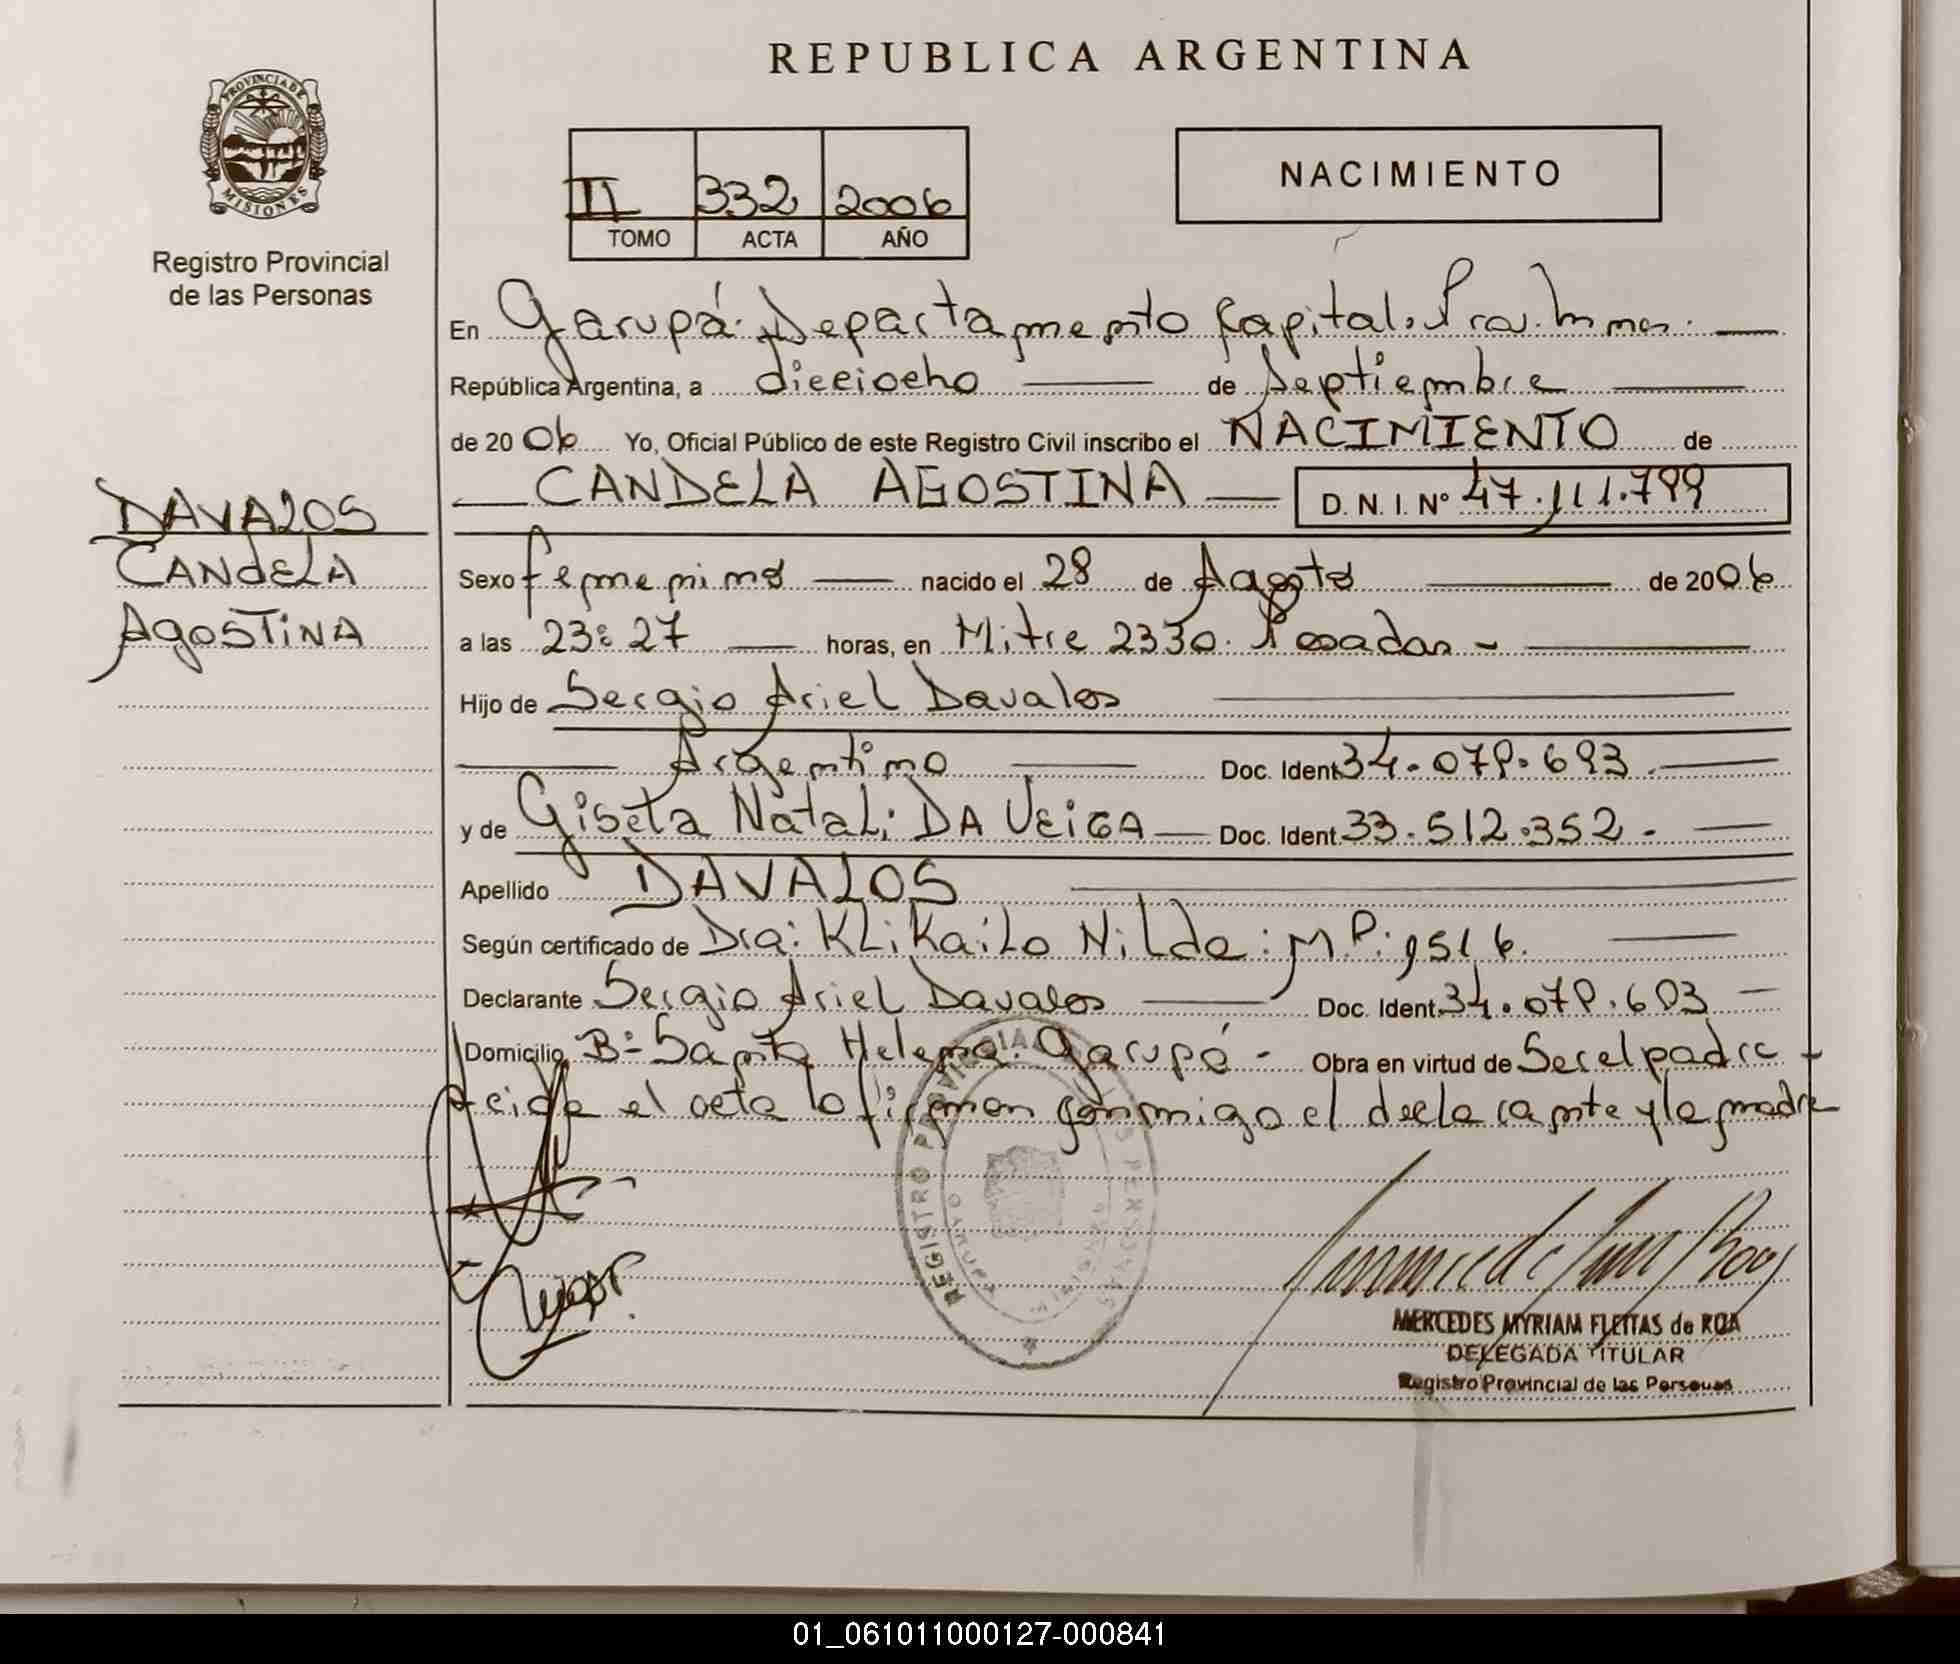 REPUBLICA ARGENTINA
PROVINCIA DE MISIONES
Registro Provincial
de las Personas
II 332 2006
TOMO ACTA AÑO
NACIMIENTO
En Garupá. Departamento Capital. Prov. Mnes.
República Argentina, a dieciocho de Septiembre
de 2006 Yo, Oficial Público de este Registro Civil inscribo el NACIMIENTO de
CANDELA AGOSTINA D. N. I. Nº 47.111.799
DAVALOS
CANDELA
AGOSTINA
Sexo femenino nacido el 28 de Agosto de 2006
a las 23:27 horas, en Mitre 2330. Posadas -
Hijo de Sergio Ariel Davalos
Argentino Doc. Ident. 34.079.693
y de Gisela Natali DA VEIGA Doc. Ident. 33.512.352.
Apellido DAVALOS
Según certificado de Dra: KLiKaiLo Nilda: M.P: 9516.
Declarante Sergio Ariel Davalos Doc. Ident. 34.079.693
Domicilio Bº Santa Helena. Garupá - Obra en virtud de Ser el padre
el acta lo firman conmigo el declarante y la madre
REGISTRO PROVINCIAL DE LAS PERSONAS
MERCEDES MYRIAM FLEITAS de ROA
DELEGADA TITULAR
Registro Provincial de las Personas
01_061011000127-000841